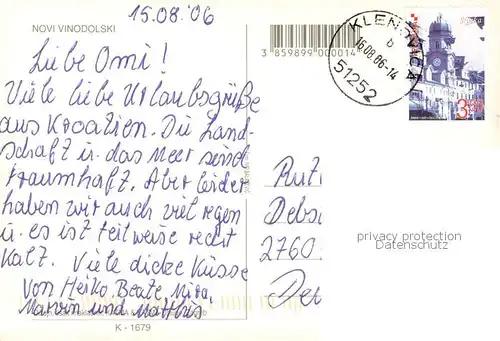 15.08.'06
NOVI VINODOLSKI
Liebe Omi!
Viele liebe Urlaubsgrüße
aus Kroatien. Die Land-
schaft u. das Meer sind
traumhaft. Aber leider
haben wir auch viel regen
u. es ist teilweise recht
kalt. Viele dicke Küsse
von Heiko, Beate, Mira,
Marvin und Matthis.
K - 1679
3 859899 000014
KLENOVICA
b
16.08.06-14
51252
Rijeka
3.50
Rut
Debs
2760
Det
privacy protection
Datenschutz